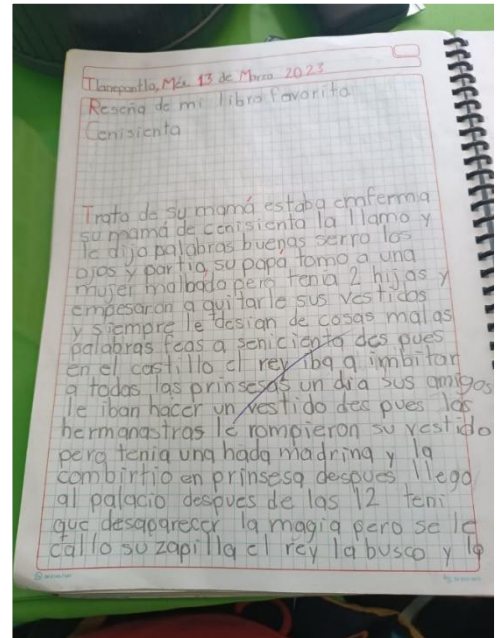 Tlanepantla, Méx. 13 de Marzo 2023
Reseña de mi libro favorito
Cenisienta
Trata de su mamá estaba emfermia
su mamá de cenisienta la llamo y
le dijo palabras buenas serro los
ojos y partio, su papá tomo a una
mujer malbada pero tenia 2 hijas y
empesaron a quitarle sus vestidos
y siempre le desian de cosas malas
palabras feas a seniciento des pues
en el castillo el rey iba a imbitar
a todas las prinsesas un dia sus amigos
le iban hacer un vestido des pues las
hermanastras le rompieron su vestido
pero tenia una hada madrina y la
combirtio en prinsesa despues llego
al palacio despues de las 12 teni
que desaparecer la magia pero se le
callo su zapilla el rey la busco y le